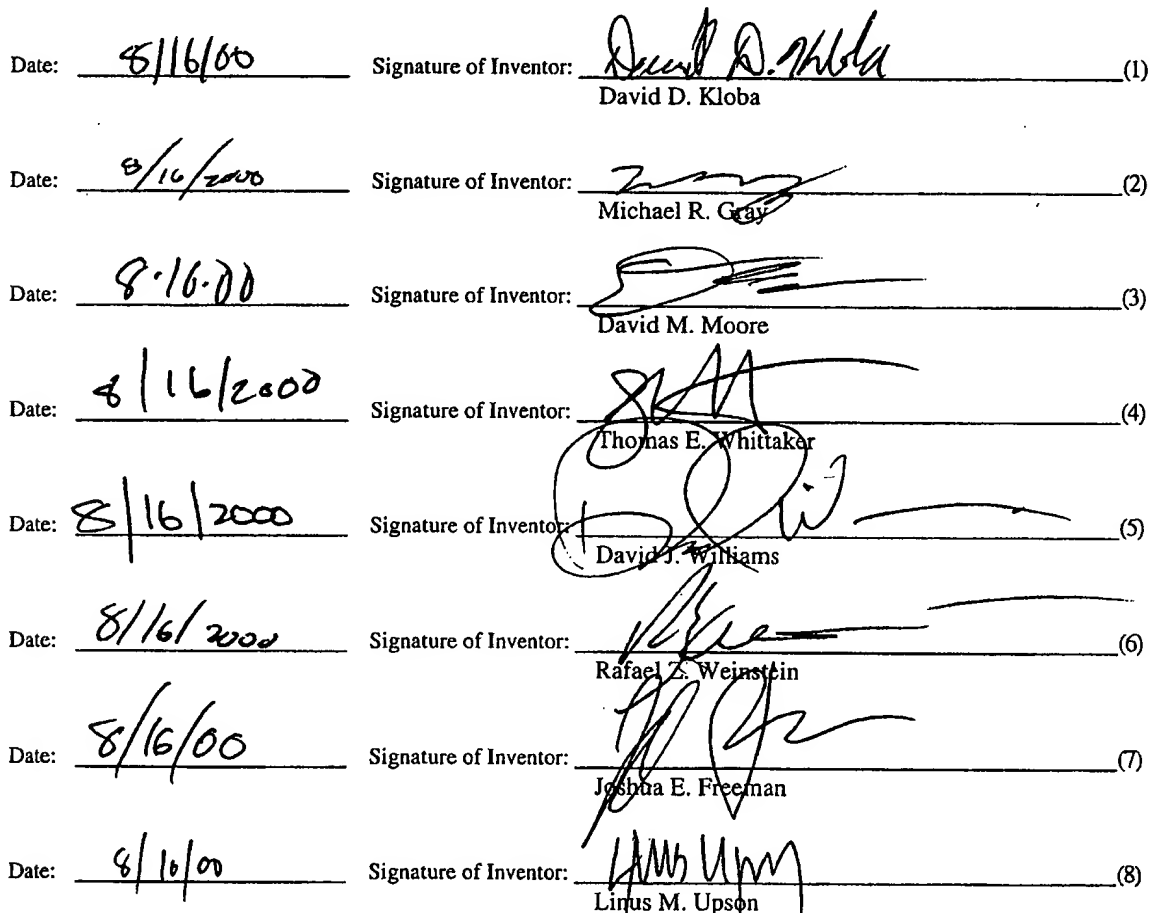 Date: 8/16/00 Signature of Inventor: David D. Kloba (1)
David D. Kloba
Date: 8/16/2000 Signature of Inventor: (2)
Michael R. Gray
Date: 8.16.00 Signature of Inventor: (3)
David M. Moore
Date: 8/16/2000 Signature of Inventor: (4)
Thomas E. Whittaker
Date: 8/16/2000 Signature of Inventor: (5)
David J. Williams
Date: 8/16/2000 Signature of Inventor: (6)
Rafael Z. Weinstein
Date: 8/16/00 Signature of Inventor: (7)
Joshua E. Freeman
Date: 8/16/00 Signature of Inventor: Linus Upson (8)
Linus M. Upson